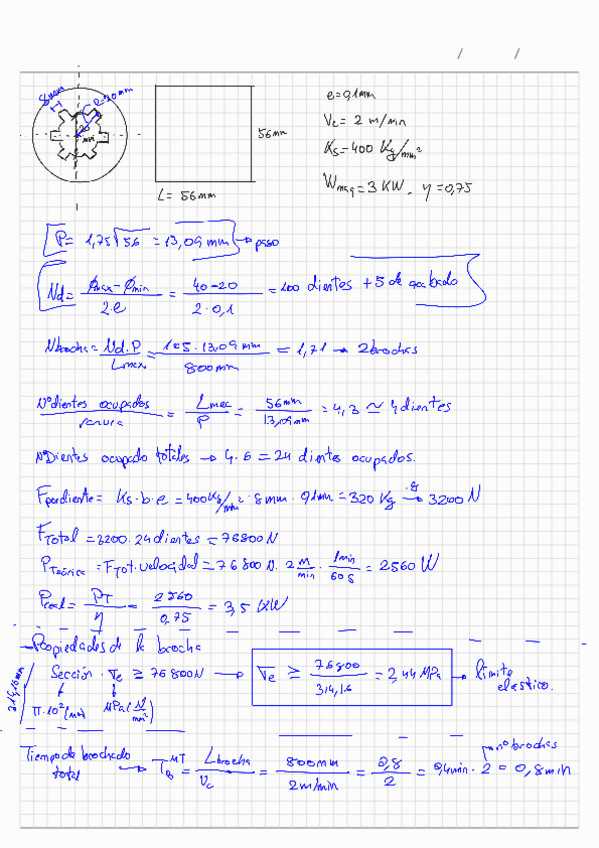 8mm
R=20mm
e=0,1mm
Vc = 2 m/min
56mm
Ks=400 Kg/mm²
Wmaq = 3 KW. η=0,75
L= 56mm
P= 1,75√56 = 13,09 mm → paso
Nd= Ømax-Ømin / 2.e = 40-20 / 2.0,1 = 100 dientes + 5 de acabado
Nbrocha= Nd.P / Lmax = 105.13,09 mm / 800mm = 1,71 → 2 brochas
Nº dientes ocupados / ranura = Lmec / P = 56mm / 13,09mm = 4,3 ≃ 4 dientes
NºDientes ocupado totales → 4.6 = 24 dientes ocupados.
Fpordiente= Ks.b.e = 400Kg/mm² . 8mm . 0,1mm = 320 Kg →·g 3200 N
FTotal = 3200.24 dientes = 76800 N
PTeórica = FTot.velocidad = 76800 N. 2 m/min . 1min/60s = 2560 W
Preal = PT / η = 2560 / 0,75 = 3,5 KW
→ Propiedades de la brocha
Sección . σe ≥ 76800N → σe ≥ 76800 / 314,16 = 2,44 MPa → límite elástico.
π.10² (mm) MPa (N/mm²)
314,16mm
Tiempo de brochado total → TB^MT = Lbrocha / Vc = 800mm / 2m/min = 0,8 / 2 = 0,4min . 2 = 0,8min
nº brochas